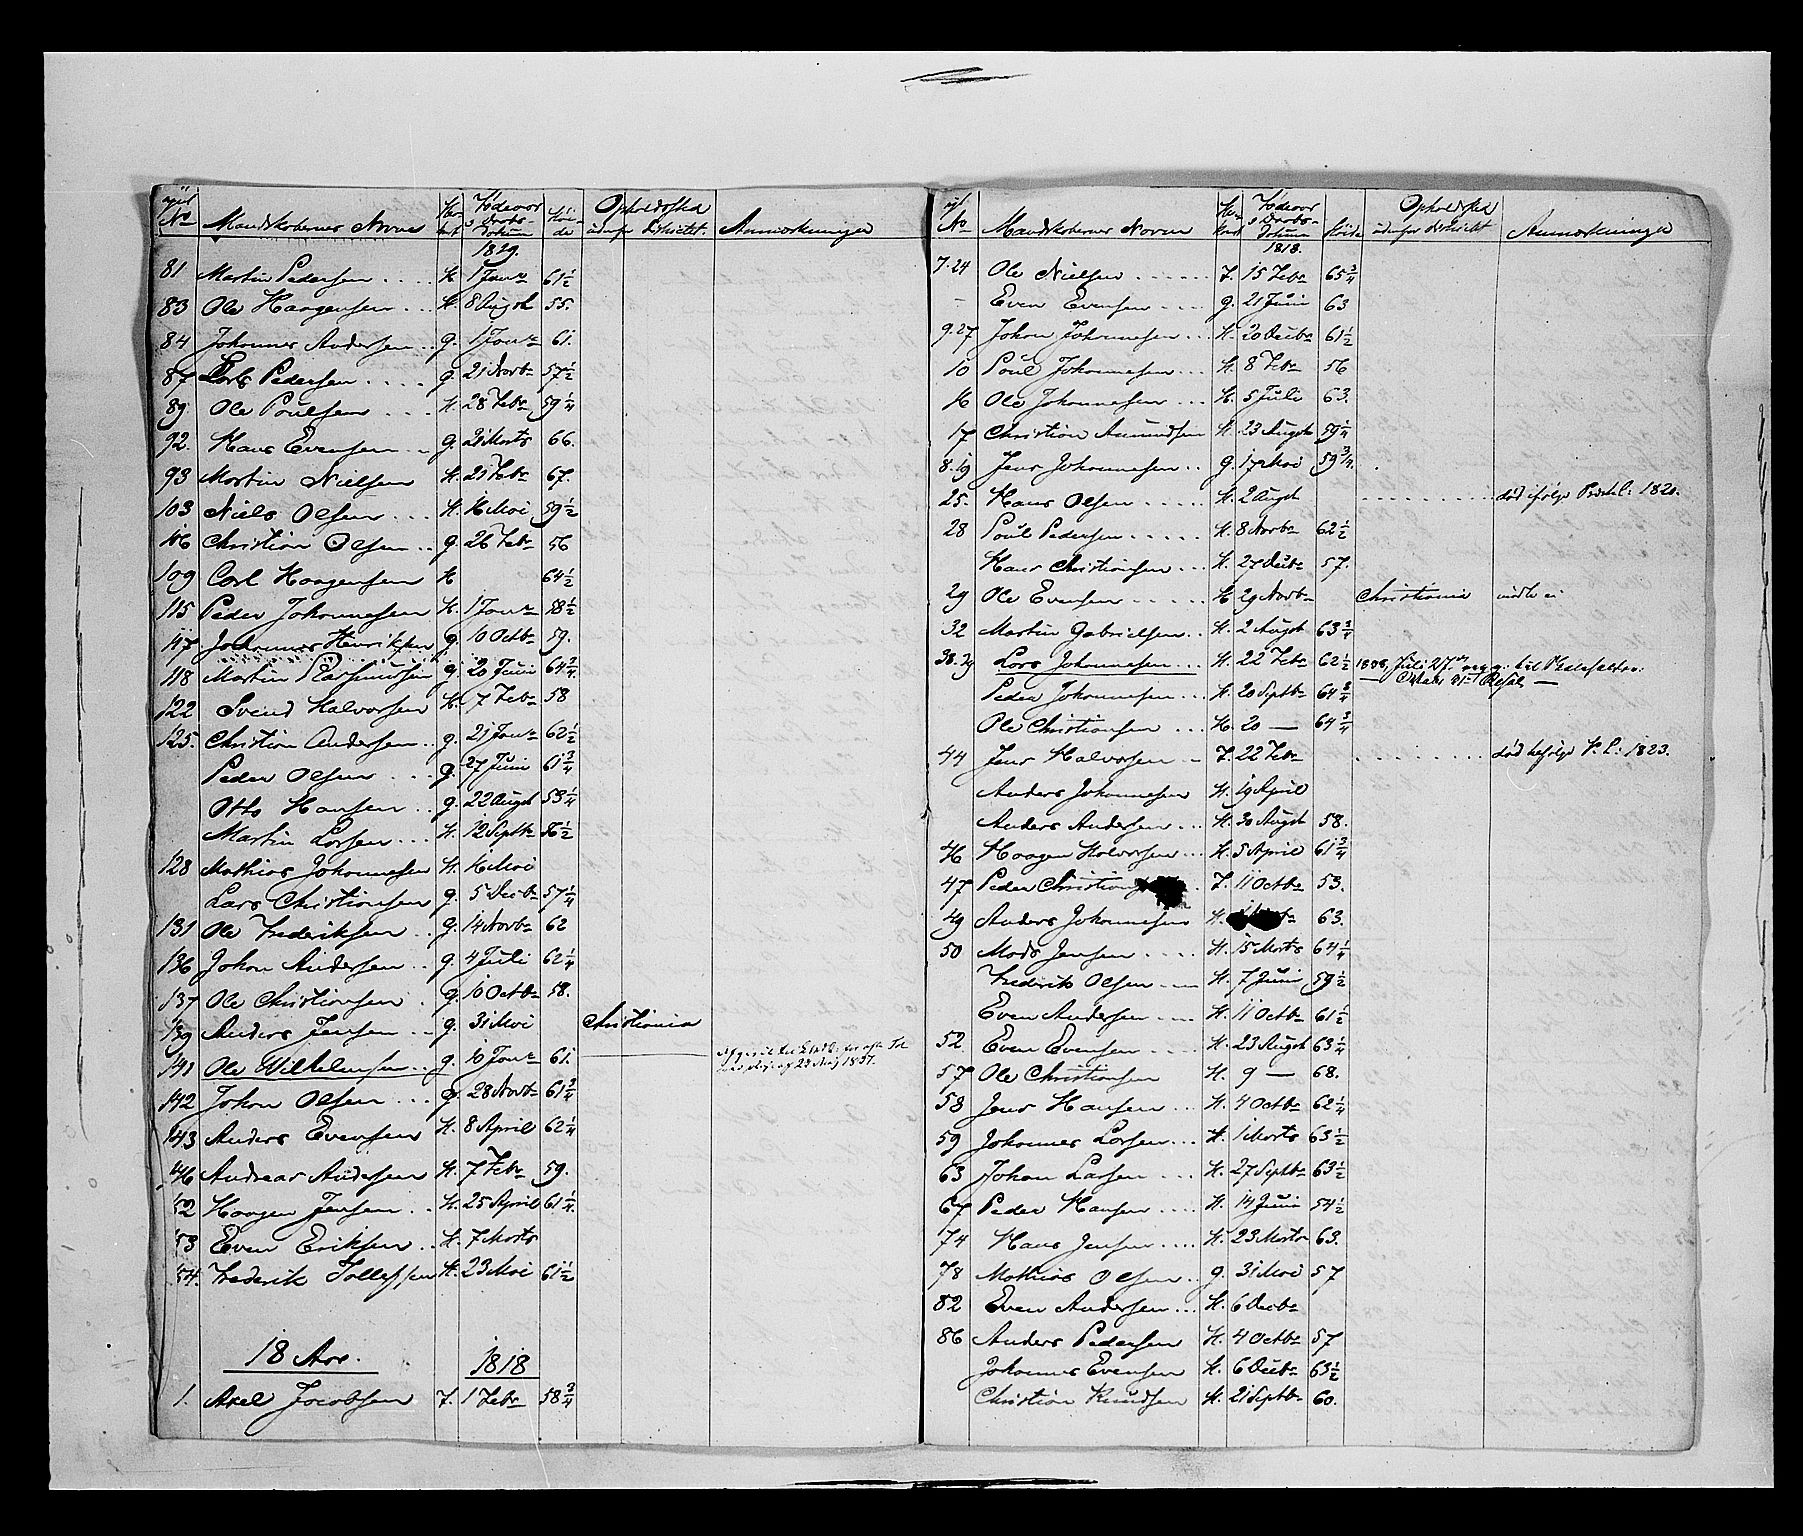 No Mandskabernes Navne Fødeaar Dag og Datum Høide Opholdssted udenfor Districtet. Anmærkninger
1829.
81 Martin Pedersen .... H 1 Janr 61½
83 Ole Haagensen ... H 8 Augst 55.
84 Johannes Andersen .. g. 1 Janr 61.
87 Lars Pedersen .... g 21 Novbr 57½
89 Ole Poulsen .... H. 28 Febr 59¼
92. Hans Evensen .. g. 21 Marts 66.
93 Martin Nielsen H. 21 Febr 67.
103 Niels Olsen .... H. 16 Mai 59½
106 Christian Olsen .. g. 26 Febr 56
109 Carl Haagensen H 64½
115 Peder Johannesen H. 1 Janr 58½
117 Johannes Henriksen g. 10 Octbr 59.
118 Martin Rasmussen g. 20 Juni 64¾
122 Svend Halvorsen H. 7 Febr 58
125. Christian Andersen .. g. 21 Janr 62½
Peder Olsen .... g. 27 Juni 61¾
Otto Hansen .. g. 22 Augst 53¼
Martin Larsen ... H. 12 Septbr 56½
128 Mathias Johannesen H. 16 Mai
Lars Christiansen g. 5 Decbr 57¼
131 Ole Frederiksen .. g. 14 Novbr 62
136 Johan Andersen .. g. 4 Juli 62¼
137 Ole Christiansen . g. 10 Octbr 58.
139 Anders Jensen .. g. 31 Mai Christiania
141 Ole Wilhelmsen .. g. 10 Janr 61.
142 Johan Olsen ... g. 28 Novbr 61¾
143 Anders Evensen H. 8 April 62¼
146 Andreas Andersen H. 7 Febr 59.
152 Haagen Jensen .. H. 25 April 61¼
153 Even Eriksen .. H. 7 Marts
154. Frederik Tollefsen H. 23 Mai 61½
18 Aar. 1818
1. Axel Jacobsen 7. 1 Febr 58¾
No Mandskabernes Navne Fødeaar Dag og Datum Høide Opholdssted udenfor Districtet Anmærkninger
1818.
7.24 Ole Nielsen ...... 7. 15 Febr 65¾
- Even Evensen .... g. 21 Juni 63
9.27 Johan Johannesen ... H. 20 Decbr 61½
10 Poul Johannesen ... H. 8 Febr 56
16 Ole Johannesen ... H. 5 Juli 63.
17 Christian Amundsen H. 23 Augst 59¼
8.19 Jens Johannesen .. g. 17 Mai 59¾
25. Hans Olsen ..... H. 2 Augst ........ død ifølge Præstel: 1820.
28 Poul Pedersen ..... H. 8 Novbr 62½
Hans Christiansen ... H. 27 Decbr 57.
29 Ole Evensen ..... H 29 Novbr Christiania
32 Martin Gabrielsen .. H. 2 Augst 63¾
38.39 Lars Johannesen .. H. 22 Febr 62½
Peder Johannesen ... H. 20 Septbr 64¾
Ole Christiansen ... H. 20 — 64¾
44 Jens Halvorsen .. 7. 22 Febr ........ død ifølge P.l: 1823.
Anders Johannesen H. 19 April
Anders Andersen ... H. 30 Augst 58.
46 Haagen Halvorsen ... H. 5 April 61¾
47 Peder 7. 11 Octbr 53.
49 Anders Johannesen H. 63.
50 Mads Jensen .... H. 15 Marts 64¼
Frederik Olsen .... H. 7 Juni 59½
Even Andersen .... H. 11 Octbr 61½
52 Even Evensen .... H. 23 Augst 63¼
57 Ole Christiansen H. 9 — 68.
58 Jens Hansen ... H. 4 Octbr 62¼
59 Johannes Larsen ... H. 1 Marts 63½
63 Johan Larsen ... H. 27 Septbr 63½
67 Peder Hansen .... H. 14 Juni 54½
74 Hans Jensen .... H. 23 Marts 63.
78 Mathias Olsen .. g. 31 Mai 57
82 Even Andersen ... H. 6 Decbr
86 Anders Pedersen H. 4 Octbr 57
Johannes Evensen H. 6 Decbr 63½
Christian Knudsen H. 21 Septbr 60.